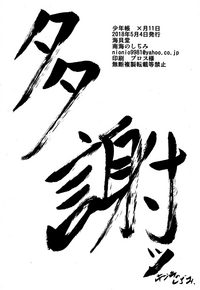 少年帳　×月11日
2018年5月4日発行
海貝堂
南海のしぢみ
nionio9981@yahoo.co.jp
印刷　プロス様
無断複製転載等禁止
多謝ッ